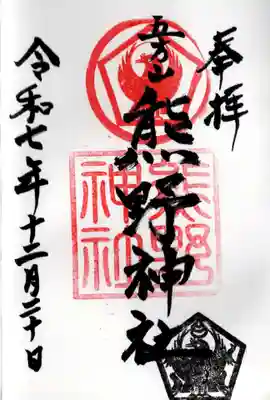 奉拝
五方山
熊野神社
熊野
神社
令和七年十二月二十日